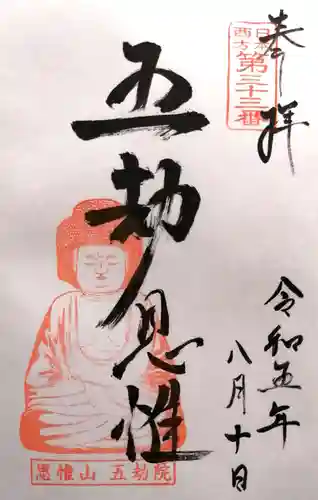 奉拝
日本
西方
第三十三番
五劫思惟
令和五年
八月十日
思惟山 五劫院